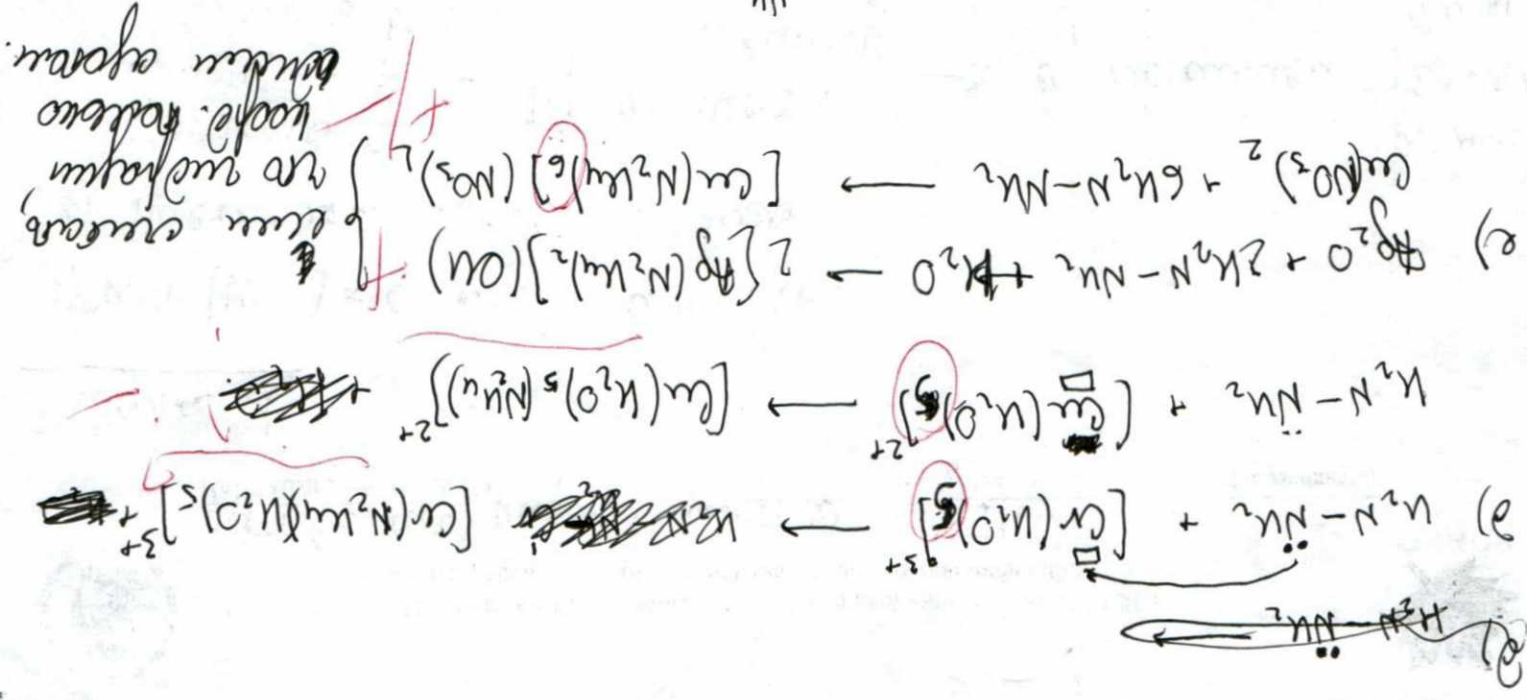 д) H₂N–N̈H₂
д) H₂N–N̈H₂ + [Cr(H₂O)5]³⁺ → [Cr(N₂H₄)(H₂O)₅]³⁺
H₂N–N̈H₂ + [Cu(H₂O)5]²⁺ → [Cu(H₂O)₅(N₂H₄)]²⁺
е) Ag₂O + 2H₂N–NH₂ + H₂O → 2[Ag(N₂H₄)₂](OH)
Cu(NO₃)₂ + 6H₂N–NH₂ → [Cu(N₂H₄)6](NO₃)₂
если считать,
что гидразин
коорд. только
одним азотом.